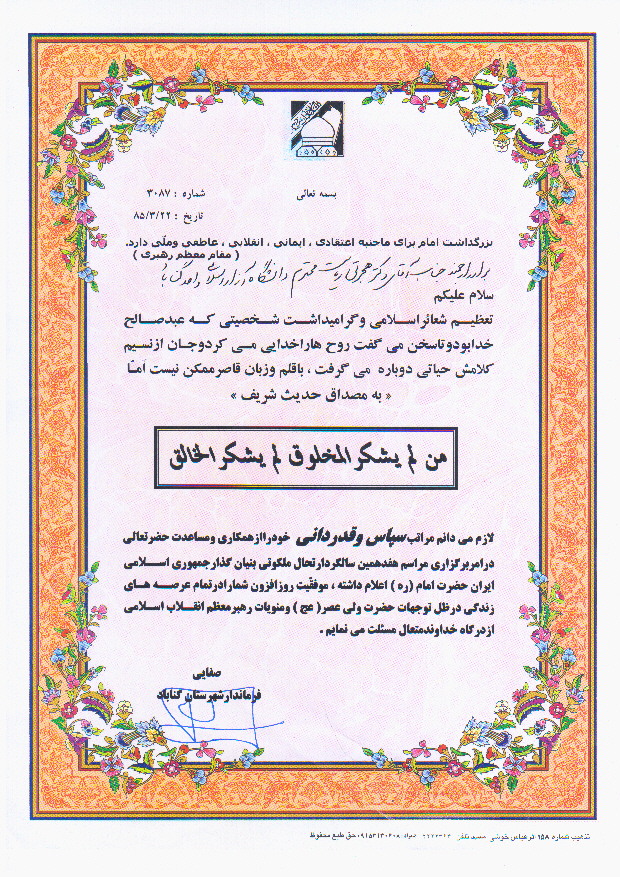 بسمه تعالی
شماره : ۳۰۸۷
تاریخ : ۸۵/۳/۲۲
بزرگداشت امام برای ماجنبه اعتقادی ، ایمانی ، انقلابی ، عاطفی وملّی دارد.
( مقام معظم رهبری )
برادر ارجمند جناب آقای دکتر هجرتی ریاست محترم دانشگاه آزاد اسلامی واحد گناباد
سلام علیکم
تعظیم شعائراسلامی وگرامیداشت شخصیتی که عبدصالح
خدابودوتاسخن می گفت روح هاراخدایی می کردوجان ازنسیم
کلامش حیاتی دوباره می گرفت ، باقلم وزبان قاصرممکن نیست امّا
« به مصداق حدیث شریف »
من لم یشکر المخلوق لم یشکر الخالق
لازم می دانم مراتب سپاس وقدردانی خودراازهمکاری ومساعدت حضرتعالی
درامربرگزاری مراسم هفدهمین سالگردارتحال ملکوتی بنیان گذارجمهوری اسلامی
ایران حضرت امام (ره ) اعلام داشته ، موفقیت روزافزون شمارادرتمام عرصه های
زندگی درظل توجهات حضرت ولی عصر( عج ) ومنویات رهبرمعظم انقلاب اسلامی
ازدرگاه خداوندمتعال مسئلت می نمایم .
صفایی
فرماندارشهرستان گناباد
تذهیب شماره ۱۵۸ اثر عباس خوشی حق طبع محفوظ